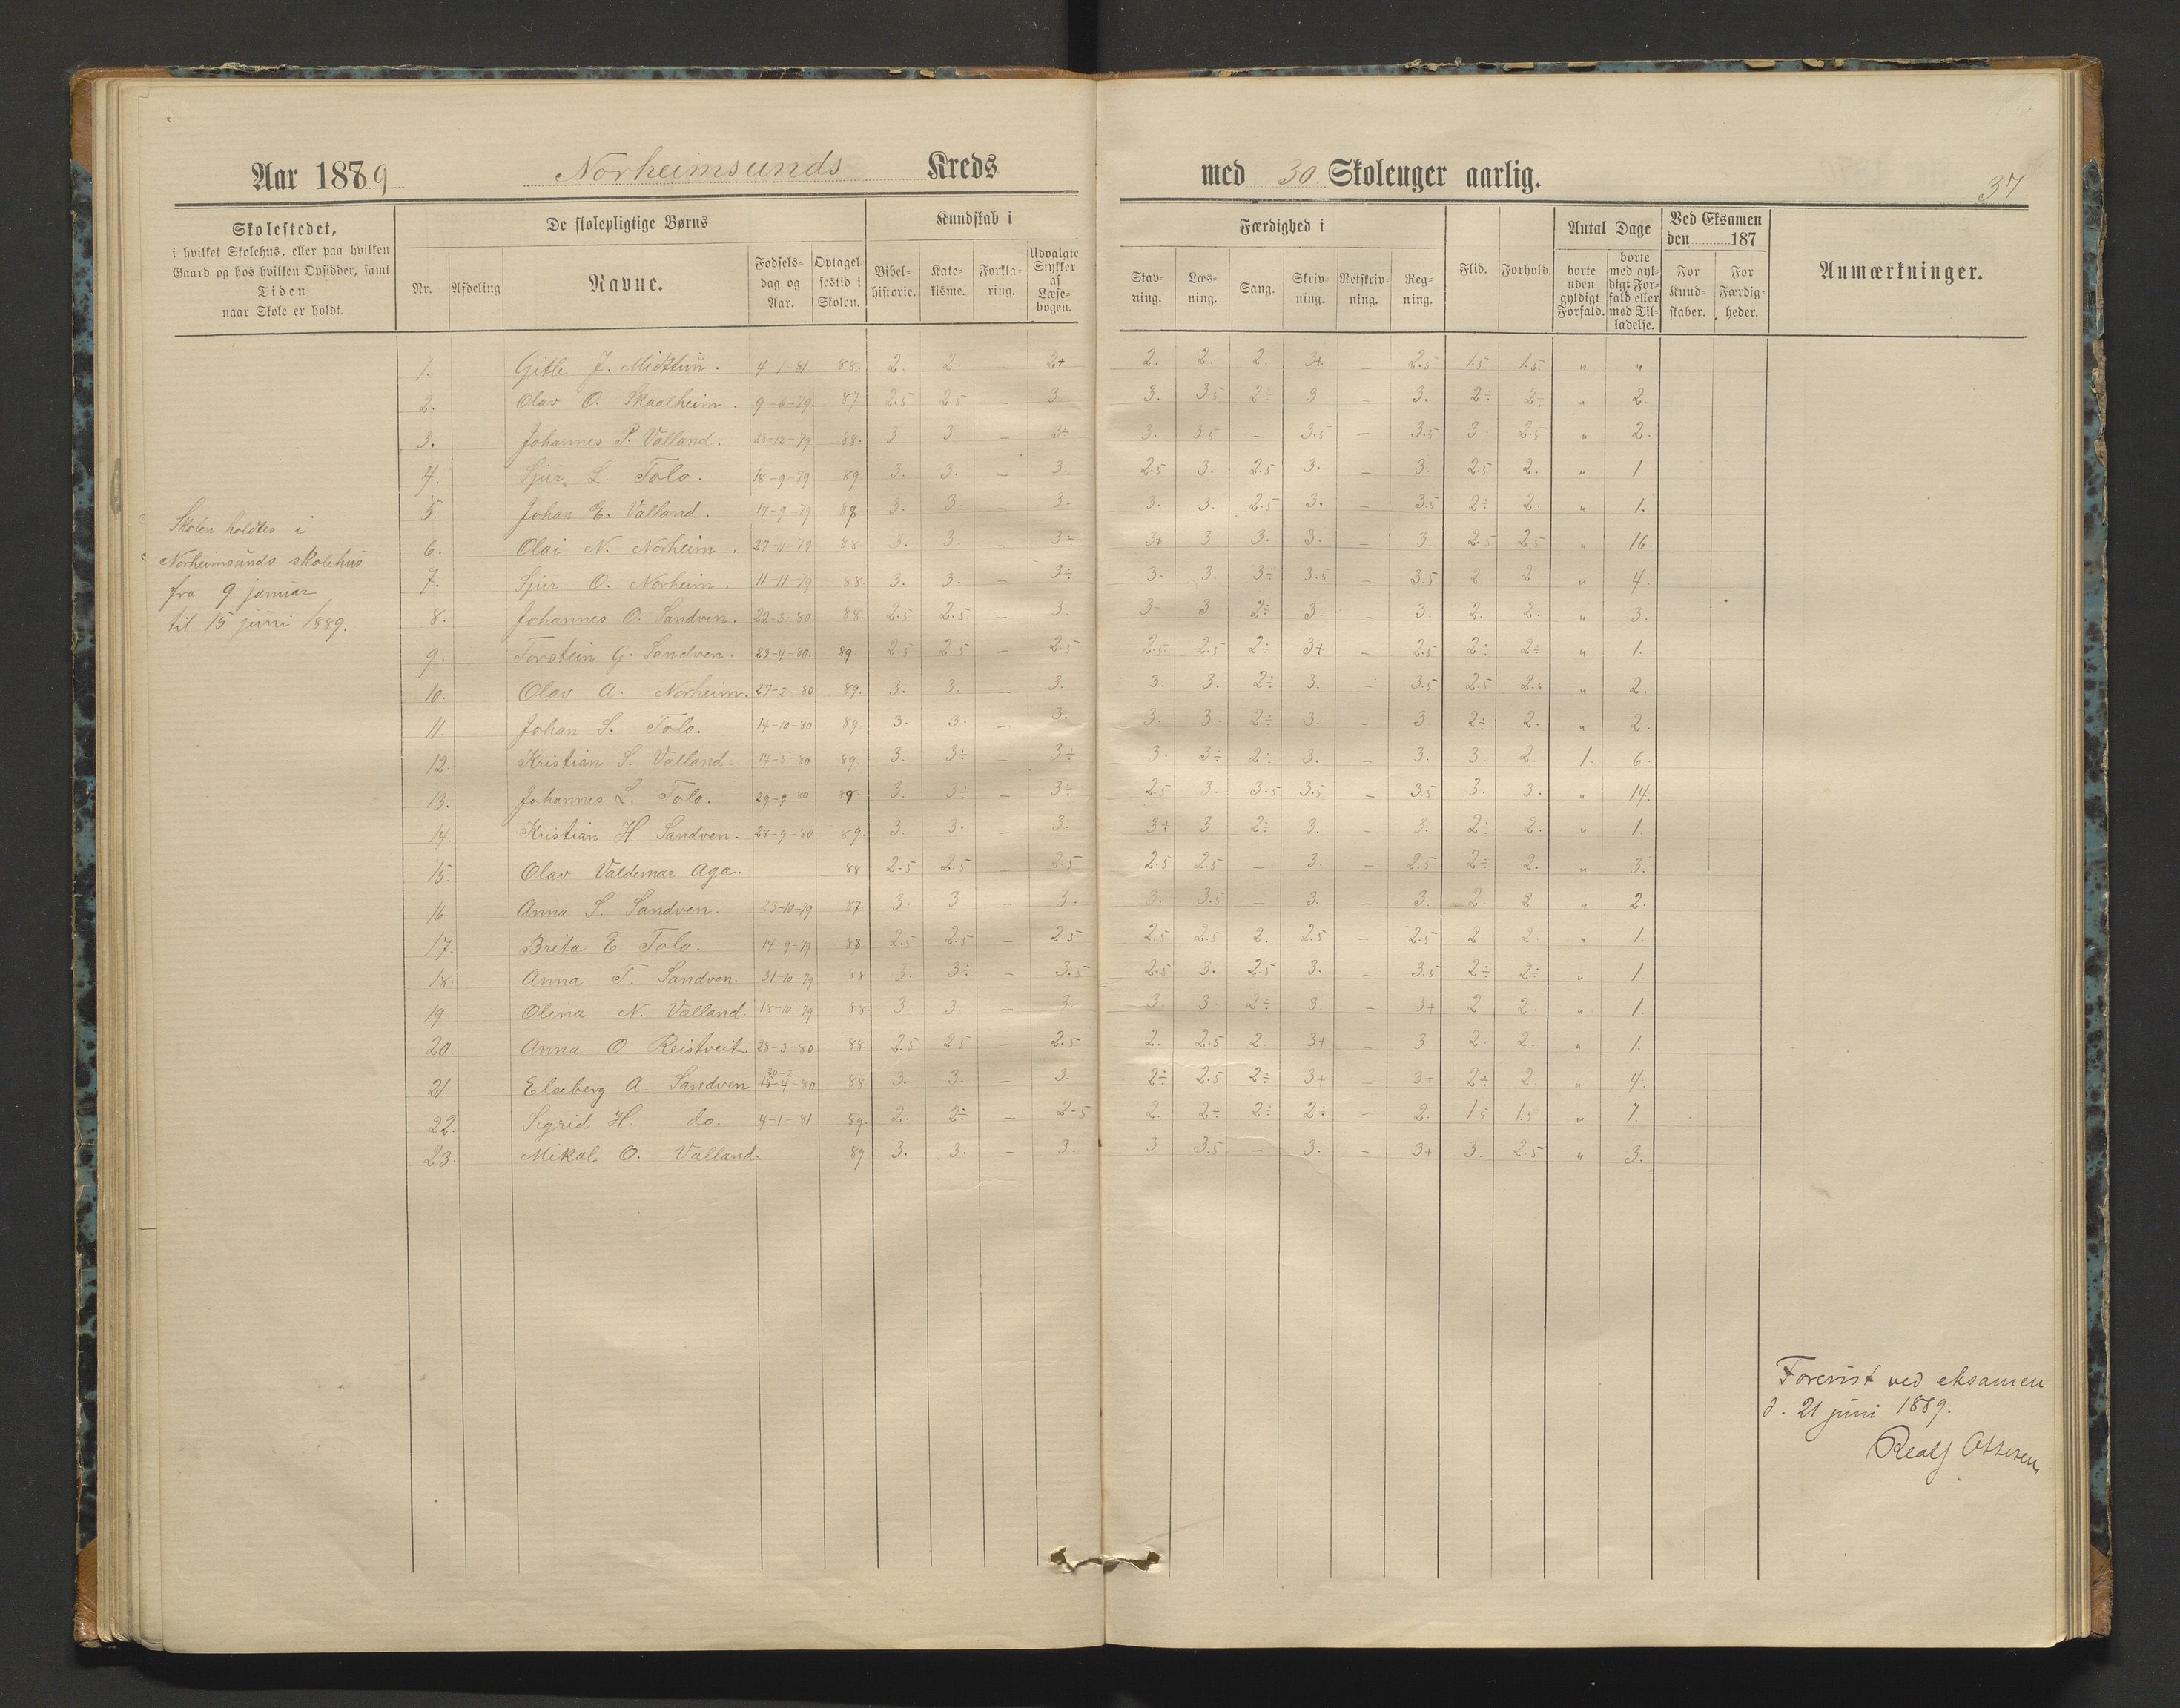 Aar 1889 Norheimsunds Kreds med 30 Skolenger aarlig.
37
Skolestedet,
i hvilket Skolehus, eller paa hvilken
Gaard og hos hvilken Opsidder, samt
Tiden
naar Skole er holdt.
De skolepligtige Børns
Nr. Afdeling Navne. Fødsels-dag og Aar. Optagel-sestid i Skolen.
Kundskab i
Bibel-historie. Kate-kisme. Forkla-ring. Udvalgte Stykker af Læse-bogen.
Færdighed i
Stav-ning. Læs-ning. Sang. Skriv-ning. Retskriv-ning. Reg-ning.
Flid. Forhold.
Antal Dage
borte uden gyldigt Forfald. borte med gyl-digt For-fald eller med Til-ladelse.
Ved Eksamen
den 187
For Kund-skaber. For Færdig-heder.
Anmærkninger.
Skolen holdtes i
Norheimsunds skolehus
fra 9 januar
til 15 juni 1889.
1. Gitle J. Midttun. 4-1-81 88. 2. 2. – 2+ 2. 2. 2. 3+. – 2.5 1.5 1.5. " "
2. Olav O. Skaalheim. 9-6-79. 87 2.5 2.5 – 3 3. 3.5 2÷ 3 – 3. 2÷ 2÷ " 2.
3. Johannes P. Valland. 88. 3 3 – 3÷ 3. 3.5 – 3.5 – 3.5 3. 2.5 " 2.
4. Sjur L. Tolo. 18-9-79 89. 3. 3. – 3. 2.5 3. 2.5 3. – 3. 2.5 2. " 1.
5. Johan E. Valland. 17-9-79 88 3. 3. – 3. 3. 3. 2.5 3. – 3.5 2÷ 2. " 1.
6. Olai N. Norheim. 27-11-79 88. 3. 3. – 3÷ 3+ 3 3. 3. – 3. 2.5 2.5 " 16.
7. Sjur O. Norheim. 11-11-79 88 3. 3. – 3÷ 3. 3. 3÷ 3.5 – 3.5 2 2. " 4.
8. Johannes O. Sandven. 22-3-80 88. 2.5 2.5. – 3. 3- 3 2÷ 3. – 3. 2. 2. " 3.
9. Torstein G. Sandven. 23-4-80. 89. 2.5 2.5 – 2.5 2.5 2.5 2÷ 3+ – 2.5 2÷ 2÷ " 1.
10. Olav A. Norheim. 27-2-80 89. 3. 3. – 3. 3. 3. 2÷ 3. – 3.5 2.5 2.5 " 2.
11. Johan S. Tolo. 14-10-80 89. 3. 3. – 3. 3. 3. 2÷ 3. – 3. 2÷ 2. " 2.
12. Kristian S. Valland. 14-5-80 89. 3. 3÷ – 3÷ 3. 3÷ 2÷ 3. – 3. 3. 2. 1. 6.
13. Johannes L. Tolo. 29-9-80 89. 3. 3÷ – 3÷ 2.5 3. 3.5 3.5 – 3.5 3. 3. " 14.
14. Kristian H. Sandven. 28-9-80 89. 3. 3. – 3. 3+ 3 2÷ 3. – 3. 2÷ 2. " 1.
15. Olav Valdemar Aga. 88 2.5 2.5 – 2.5 2.5 2.5 – 3. – 2.5 2÷ 2. " 3.
16. Anna S. Sandven. 23-10-79 87 3. 3 – 3. 3. 3.5 – 3. – 3. 2. 2. " 2.
17. Brita E. Tolo. 14-9-79 88 2.5 2.5 – 2.5 2.5 2.5 2. 2.5 – 2.5 2 2. " 1.
18. Anna T. Sandven. 31-10-79 88 3. 3÷ – 3.5 2.5 3. 2.5 3. – 3.5 2÷ 2÷ " 1.
19. Olina N. Valland. 18-10-79 88 3. 3. – 3. 3. 3. 2÷ 3 – 3+ 2 2. " 1.
20. Anna O. Reistveit. 28-3-80 88. 2.5 2.5 – 2.5 2. 2.5 2. 3+ – 3. 2. 2. " 1.
21. Elseberg A. Sandven 20-2 15-4-80 88 3. 3. – 3. 2÷ 2.5 2÷ 3+ – 3+ 2÷ 2. " 4.
22. Sigrid H. do. 4-1-81 89. 2. 2÷ – 2.5 2. 2÷ 2÷ 2÷ – 2. 1.5 1.5 " 7.
23. Mikal O. Valland. 89 3. 3. – 3. 3 3.5 – 3. – 3+ 3. 2.5 " 3.
Forevist ved eksamen
d. 21 juni 1889.
Realf Ottesen